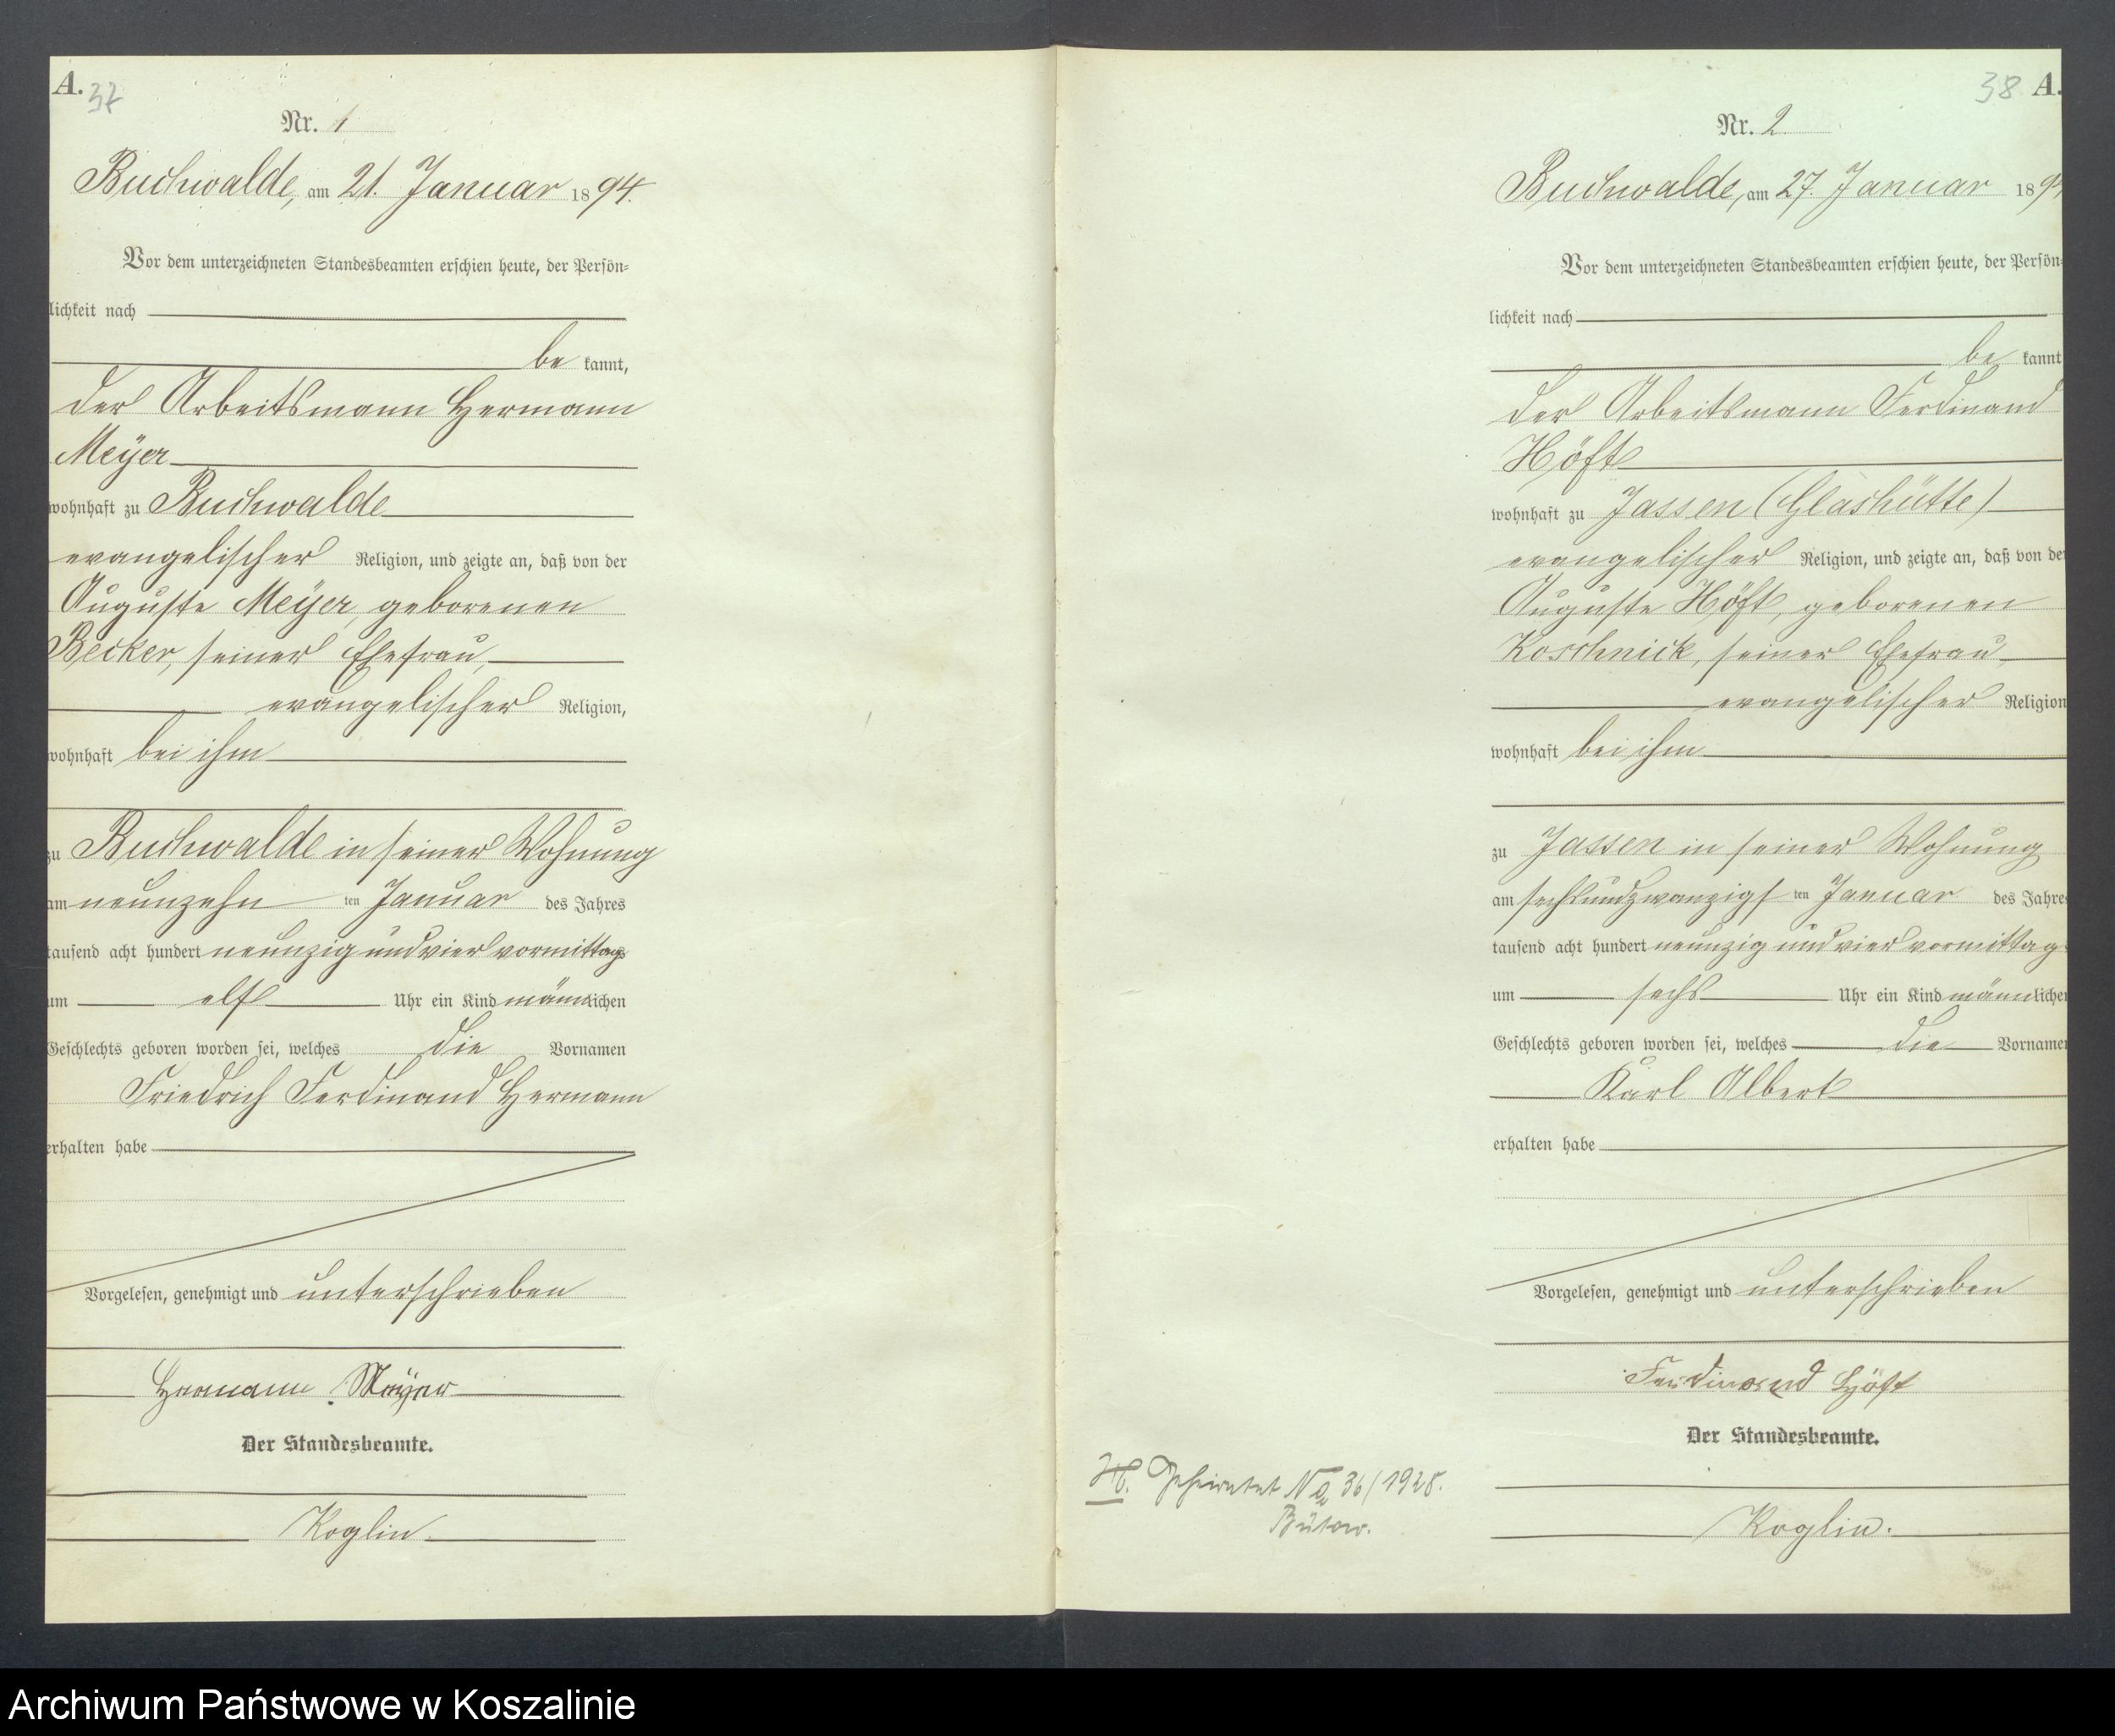 A. 37
Nr. 1
Buchwalde, am 21. Januar 1894.
Vor dem unterzeichneten Standesbeamten erschien heute, der Persön-
lichkeit nach
be kannt,
der Arbeitsmann Hermann
Meÿer
wohnhaft zu Buchwalde
evangelischer Religion, und zeigte an, daß von der
Auguste Meÿer, geborenen
Becker, seiner Ehefrau,
evangelischer Religion,
wohnhaft bei ihm
zu Buchwalde in seiner Wohnung
am neunzehn ten Januar des Jahres
tausend acht hundert neunzig und vier vormittags
um elf Uhr ein Kind männlichen
Geschlechts geboren worden sei, welches die Vornamen
Friedrich Ferdinand Hermann
erhalten habe
Vorgelesen, genehmigt und unterschrieben
Hermann Meÿer
Der Standesbeamte.
Koglin.
38 A.
Nr. 2
Buchwalde, am 27. Januar 189
Vor dem unterzeichneten Standesbeamten erschien heute, der Persön-
lichkeit nach
be kannt
der Arbeitsmann Ferdinand
Höft
wohnhaft zu Jassen (Glashütte)
evangelischer Religion, und zeigte an, daß von der
Auguste Höft, geborenen
Koschnick, seiner Ehefrau
evangelischer Religion
wohnhaft bei ihm
zu Jassen in seiner Wohnung
am sechsundzwanzigs ten Januar des Jahres
tausend acht hundert neunzig und vier vormittag
um sechs Uhr ein Kind männlichen
Geschlechts geboren worden sei, welches die Vornamen
Karl Albert
erhalten habe
Vorgelesen, genehmigt und unterschrieben
Ferdinand Höft
Der Standesbeamte.
Koglin.
Geheiratet No 36/1928.
Bütow.
Archiwum Państwowe w Koszalinie